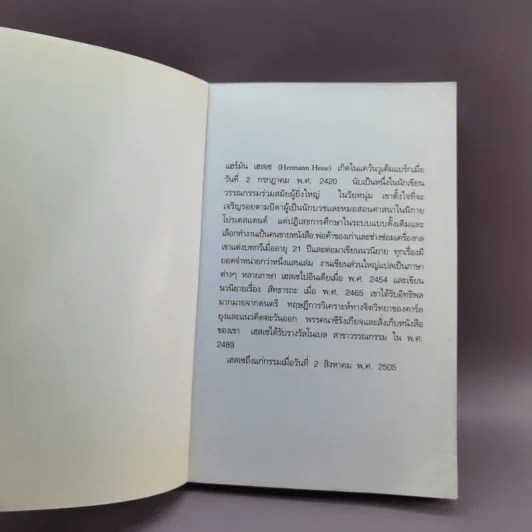 แฮร์มัน เฮสเซ (Hermann Hesse) เกิดในแคว้นวูเต็มแบร์กเมื่อ
วันที่ 2 กรกฎาคม พ.ศ. 2420 นับเป็นหนึ่งในนักเขียน
วรรณกรรมร่วมสมัยผู้ยิ่งใหญ่ ในวัยหนุ่ม เขาตั้งใจที่จะ
เจริญรอยตามบิดาผู้เป็นนักบวชและหมอสอนศาสนาในนิกาย
โปรเตสแตนต์ แต่ปฏิเสธการศึกษาในระบบแบบดั้งเดิมและ
เลือกทำงานเป็นคนขายหนังสือ พ่อค้าของเก่าและช่างซ่อมเครื่องกล
เขาแต่งบทกวีเมื่ออายุ 21 ปีและต่อมาเขียนนวนิยาย ทุกเรื่องมี
ยอดจำหน่ายกว่าหนึ่งแสนเล่ม งานเขียนส่วนใหญ่แปลเป็นภาษา
ต่างๆ หลายภาษา เฮสเซไปอินเดียเมื่อ พ.ศ. 2454 และเขียน
นวนิยายเรื่อง สิทธารถะ เมื่อ พ.ศ. 2465 เขาได้รับอิทธิพล
มากมายจากดนตรี ทฤษฎีการวิเคราะห์ทางจิตวิทยาของคาร์ล
ยุงและแนวคิดตะวันออก พรรคนาซีรังเกียจและสั่งเก็บหนังสือ
ของเขา เฮสเซได้รับรางวัลโนเบล สาขาวรรณกรรม ใน พ.ศ.
2489
เฮสเซถึงแก่กรรมเมื่อวันที่ 2 สิงหาคม พ.ศ. 2505